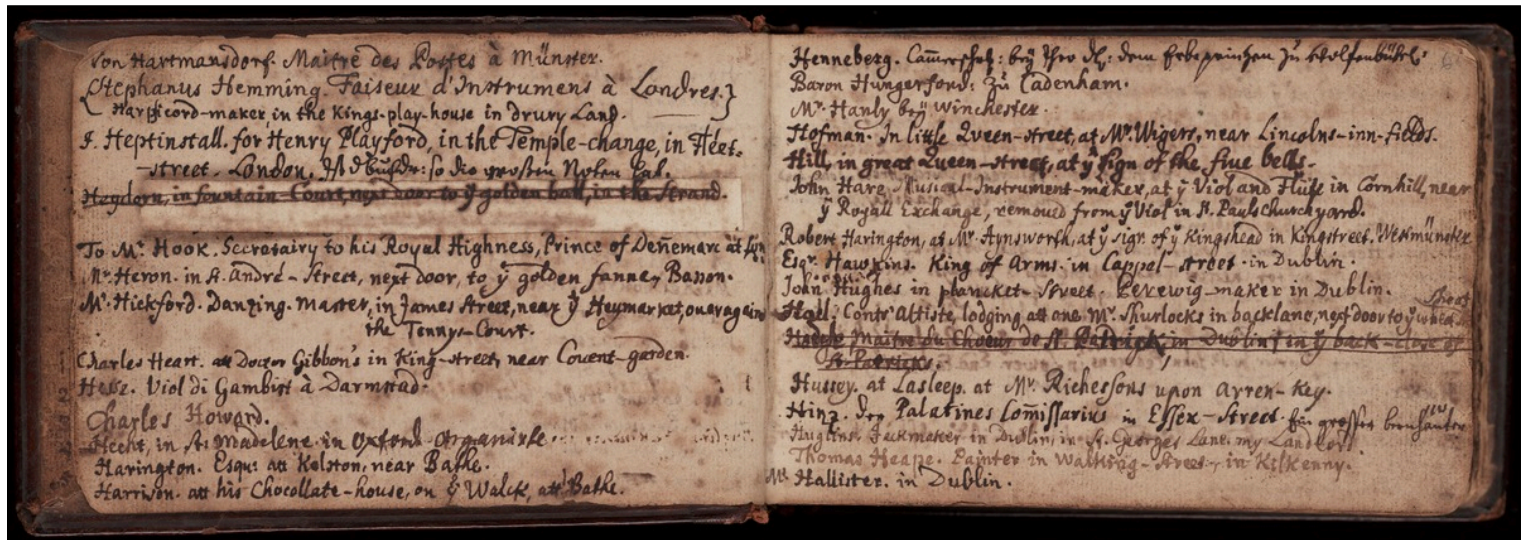 Von Hartmansdorf. Maitre des Postes à Münster.
Stephanus Hemming. Faiseur d'Instrumens à Londres.
Harpicord-maker, in the Kings-play-house in drury Land.
J. Heptinstall. for Henry Playford, in the Temple-change, in Fleet-
street. London. so die grossen Noten hat.
Heydorn, in fountain-Court, next door to ÿ golden ball, in the Strand.
To Mr. Hook. Secretairy to his Royal Highness, Prince of Deñemarc at
Mr. Heron. in St. André-Street, next door, to ÿ golden fanne, Basson.
Mr. Hickford. Danzing-master, in James street, near ÿ Heymarket, overagain
the Tennys-Court.
Charles Heart. att Doctor Gibbon's in King-street, near Covent-garden.
Hesse. Viol di Gambist à Darmstad.
Charles Howard.
Hecht, in St. Madelene in Oxford Organiste
Harington. Esqr: att Kelston, near Bathe.
Harrison. att his Chocollate-house, on ÿ Walck, att Bathe.
Henneberg. bey Ihro dem Erbprintzen zu Wolfenbüttel:
Baron Hungerford: zu Cadenham.
Mr. Hanly beÿ Winchester.
Hofmañ. In little Queen-street, at Mr. Wigers, near Lincolns-inn-fields.
Hill, in great Queen-street, at ÿ sign of the five bells.
John Hare Musical-Instrument-maker, at ÿ Viol and Flute in Cornhill, near
ÿ Royall Exchange, removed from ÿ Viol in St. Pauls Churchyard.
Robert Harington, at Mr. Aynsworth, at ÿ sign of ÿ Kingshead in Kingstreet. Westmünster
Esqr. Hawkins. King of Arms. in Cappel-street. in Dublin.
John Hughes in plancket-street. Perewig-maker in Dublin.
street
Contr'Altiste, lodging att one Mr. Shurlocks in backlane, next door to ÿ
Maitre du Choeur de St. Patrick, in Dublin in ÿ back-close of
St Patricks.
Hussey. at Lasleep. at Mr. Richessons upon Arren-Key.
Hinz. der Palatines Com̃issarius in Essex-street. Ein grosser
in Dublin, in St. Georges Lane. my Landlord
Thomas Heape. Painter in Street, in Kilkenny.
Mr. Hallister. in Dublin.